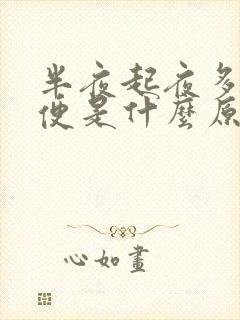 半夜起夜多
便是什麼原
心如畫